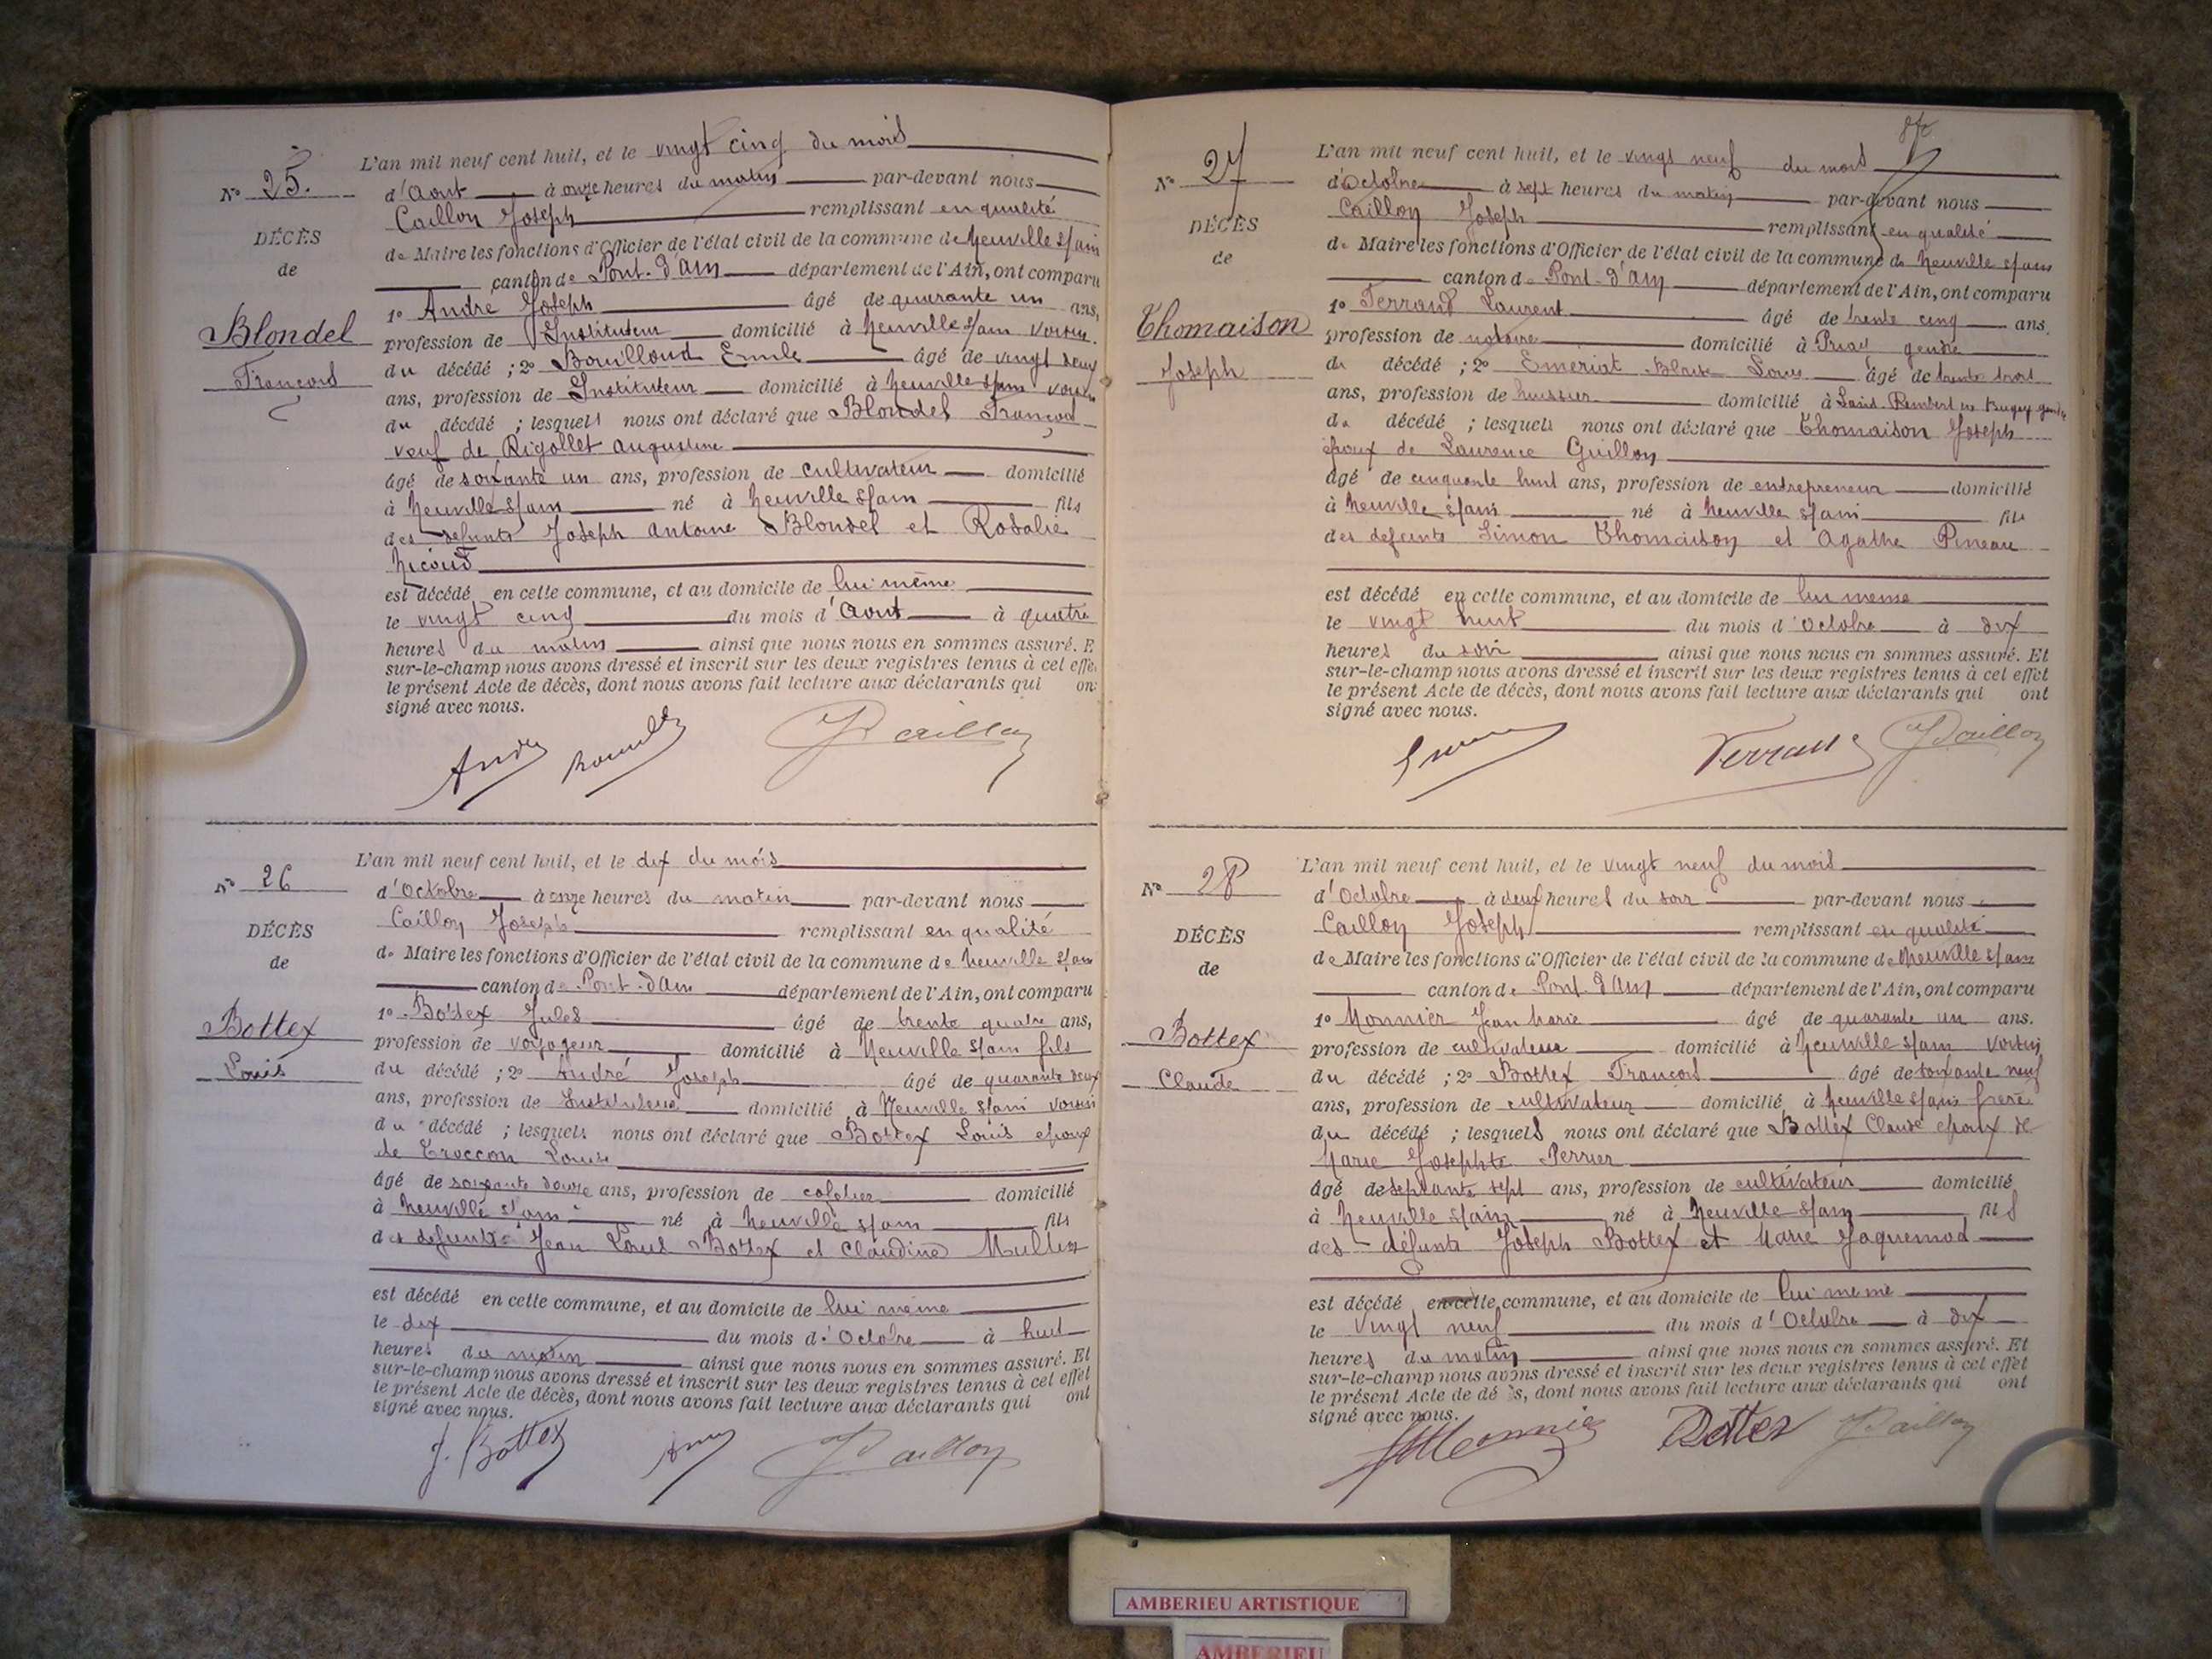 L'an mil neuf cent huit, et le vingt cinq du mois
N° 25.
d'Aout à onze heures du matin par-devant nous
Caillon Joseph remplissant en qualité
DÉCÈS
de Maire les fonctions d'Officier de l'état civil de la commune de Neuville s/ain
de
canton de Pont-d'Ain département de l'Ain, ont comparu
1° André Joseph âgé de quarante un ans,
Blondel
François
profession de Instituteur domicilié à Neuville s/ain voisin
du décédé ; 2° Bouilloud Emile âgé de vingt deux
ans, profession de Instituteur domicilié à Neuville s/ain voisin
du décédé ; lesquels nous ont déclaré que Blondel François
veuf de Rigollet Augustine
âgé de soixante un ans, profession de cultivateur domicilié
à Neuville s/ain né à Neuville s/ain fils
des defunts Joseph Antoine Blondel et Rosalie
Nicoud
est décédé en cette commune, et au domicile de lui même
le vingt cinq du mois d'Aout à quatre
heures du matin ainsi que nous nous en sommes assuré. E
sur-le-champ nous avons dressé et inscrit sur les deux registres tenus à cet effe
le présent Acte de décès, dont nous avons fait lecture aux déclarants qui on
signé avec nous.
André JCaillon
L'an mil neuf cent huit, et le dix du mois
N° 26
d'Octobre à onze heures du matin par-devant nous
Caillon Joseph remplissant en qualité
DÉCÈS
de Maire les fonctions d'Officier de l'état civil de la commune de Neuville s/ain
de
canton de Pont-d'Ain département de l'Ain, ont comparu
1° Bottex Jules âgé de trente quatre ans,
Bottex
Louis
profession de voyageur domicilié à Neuville s/ain fils
du décédé ; 2° André Joseph âgé de quarante deux
ans, profession de Instituteur domicilié à Neuville s/ain voisin
du décédé ; lesquels nous ont déclaré que Bottex Louis epoux
de Troccon Louise
âgé de soixante douze ans, profession de domicilié
à Neuville s/ain né à Neuville s/ain fils
des defunts Jean Louis Bottex et Claudine
est décédé en cette commune, et au domicile de lui même
le dix du mois d'Octobre à huit
heures du matin ainsi que nous nous en sommes assuré. Et
sur-le-champ nous avons dressé et inscrit sur les deux registres tenus à cet effet
le présent Acte de décès, dont nous avons fait lecture aux déclarants qui ont
signé avec nous.
J. Bottex JCaillon
L'an mil neuf cent huit, et le vingt neuf du mois
N° 27
d'Octobre à sept heures du matin par-devant nous
Caillon Joseph remplissant en qualité
DÉCÈS
de Maire les fonctions d'Officier de l'état civil de la commune de Neuville s/ain
de
canton de Pont-d'Ain département de l'Ain, ont comparu
1° Ferrand Laurent âgé de trente cinq ans.
Thomaison
Joseph
profession de notaire domicilié à Priay gendre
du décédé ; 2° Emeriat Louis âgé de trente trois
ans, profession de huissier domicilié à Saint-Rambert en Bugey gendre
du décédé ; lesquels nous ont déclaré que Thomaison Joseph
époux de Laurence Guillon
âgé de cinquante huit ans, profession de entrepreneur domicilié
à Neuville s/ain né à Neuville s/ain fils
des defunts Simon Thomaison et Agathe Pineau
est décédé en cette commune, et au domicile de lui meme
le vingt huit du mois d'Octobre à dix
heures du soir ainsi que nous nous en sommes assuré. Et
sur-le-champ nous avons dressé et inscrit sur les deux registres tenus à cet effet
le présent Acte de décès, dont nous avons fait lecture aux déclarants qui ont
signé avec nous.
JCaillon
L'an mil neuf cent huit, et le vingt neuf du mois
N° 28
d'Octobre à deux heures du soir par-devant nous
Caillon Joseph remplissant en qualité
DÉCÈS
de Maire les fonctions d'Officier de l'état civil de la commune de Neuville s/ain
de
canton de Pont-d'Ain département de l'Ain, ont comparu
1° Monnier Jean Marie âgé de quarante un ans.
Bottex
Claude
profession de cultivateur domicilié à Neuville s/ain voisin
du décédé ; 2° Bottex François âgé de soixante neuf
ans, profession de cultivateur domicilié à Neuville s/ain frere
du décédé ; lesquels nous ont déclaré que Bottex Claude epoux de
Marie Josephte Perrier
âgé de septante sept ans, profession de cultivateur domicilié
à Neuville s/ain né à Neuville s/ain fils
des défunts Joseph Bottex et Marie Jaquemod
est décédé en cette commune, et au domicile de lui meme
le vingt neuf du mois d'Octobre à dix
heures du matin ainsi que nous nous en sommes assuré. Et
sur-le-champ nous avons dressé et inscrit sur les deux registres tenus à cet effet
le présent Acte de dé s, dont nous avons fait lecture aux déclarants qui ont
signé avec nous.
JMMonnier Bottex JCaillon
AMBERIEU ARTISTIQUE
AMBERIEU